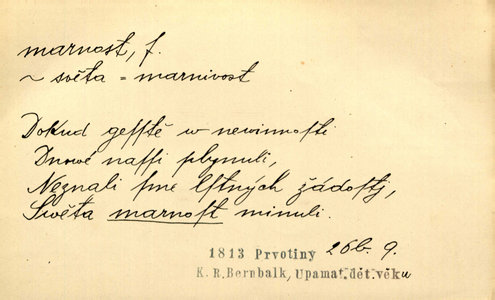 marnost, f.
~ světa = marnivost
Dokud gessstě w newinnosti
Dnowé nassi plynuli,
Neznali sme lstných žádostj,
Swěta marnost minuli.
1813 Prvotiny 26b. 9.
K. R. Bernbalk, Upamat. dět. věku